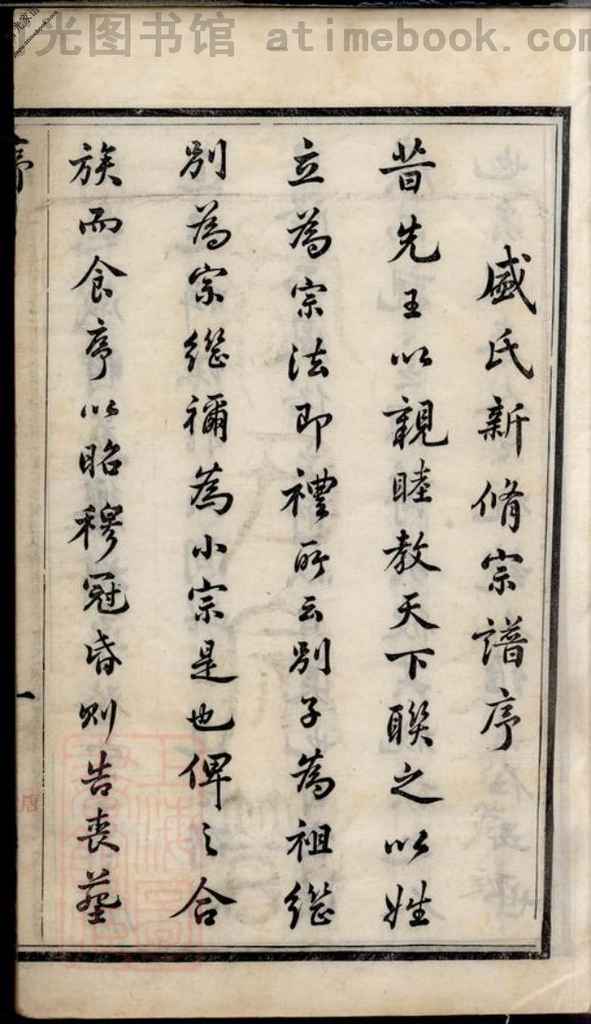 时光图书馆 atimebook.com
盛氏新脩宗譜序
昔先王以親睦教天下聯之以姓
立為宗法即禮所云別子為祖繼
別為宗繼禰為小宗是也俾之合
族而食序以昭穆冠昏則告喪葬
序
一